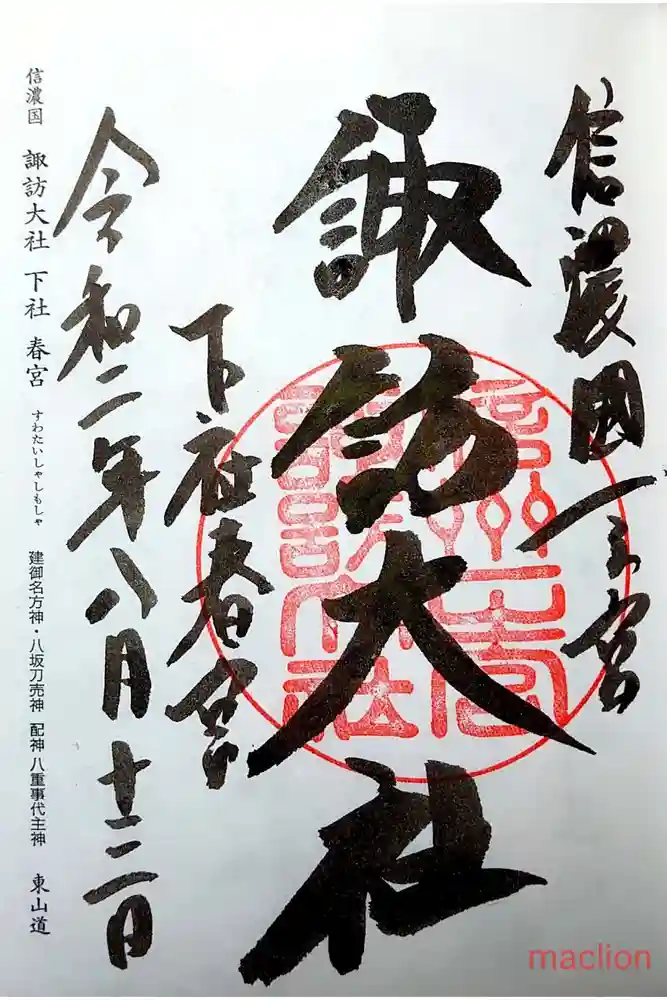 信濃國一之宮
諏訪大社
信州一之宮
諏訪大社
下社春宮
令和二年八月十二日
信濃国 諏訪大社 下社 春宮 すわたいしゃしもしゃ 建御名方神・八坂刀売神 配神 八重事代主神 東山道
maclion